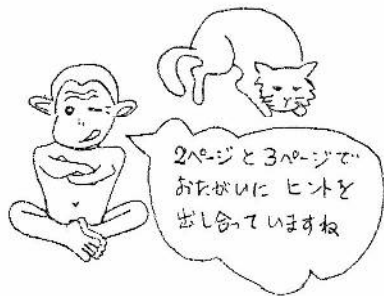 2ページと3ページで
おたがいに ヒントを
出し合っていますね